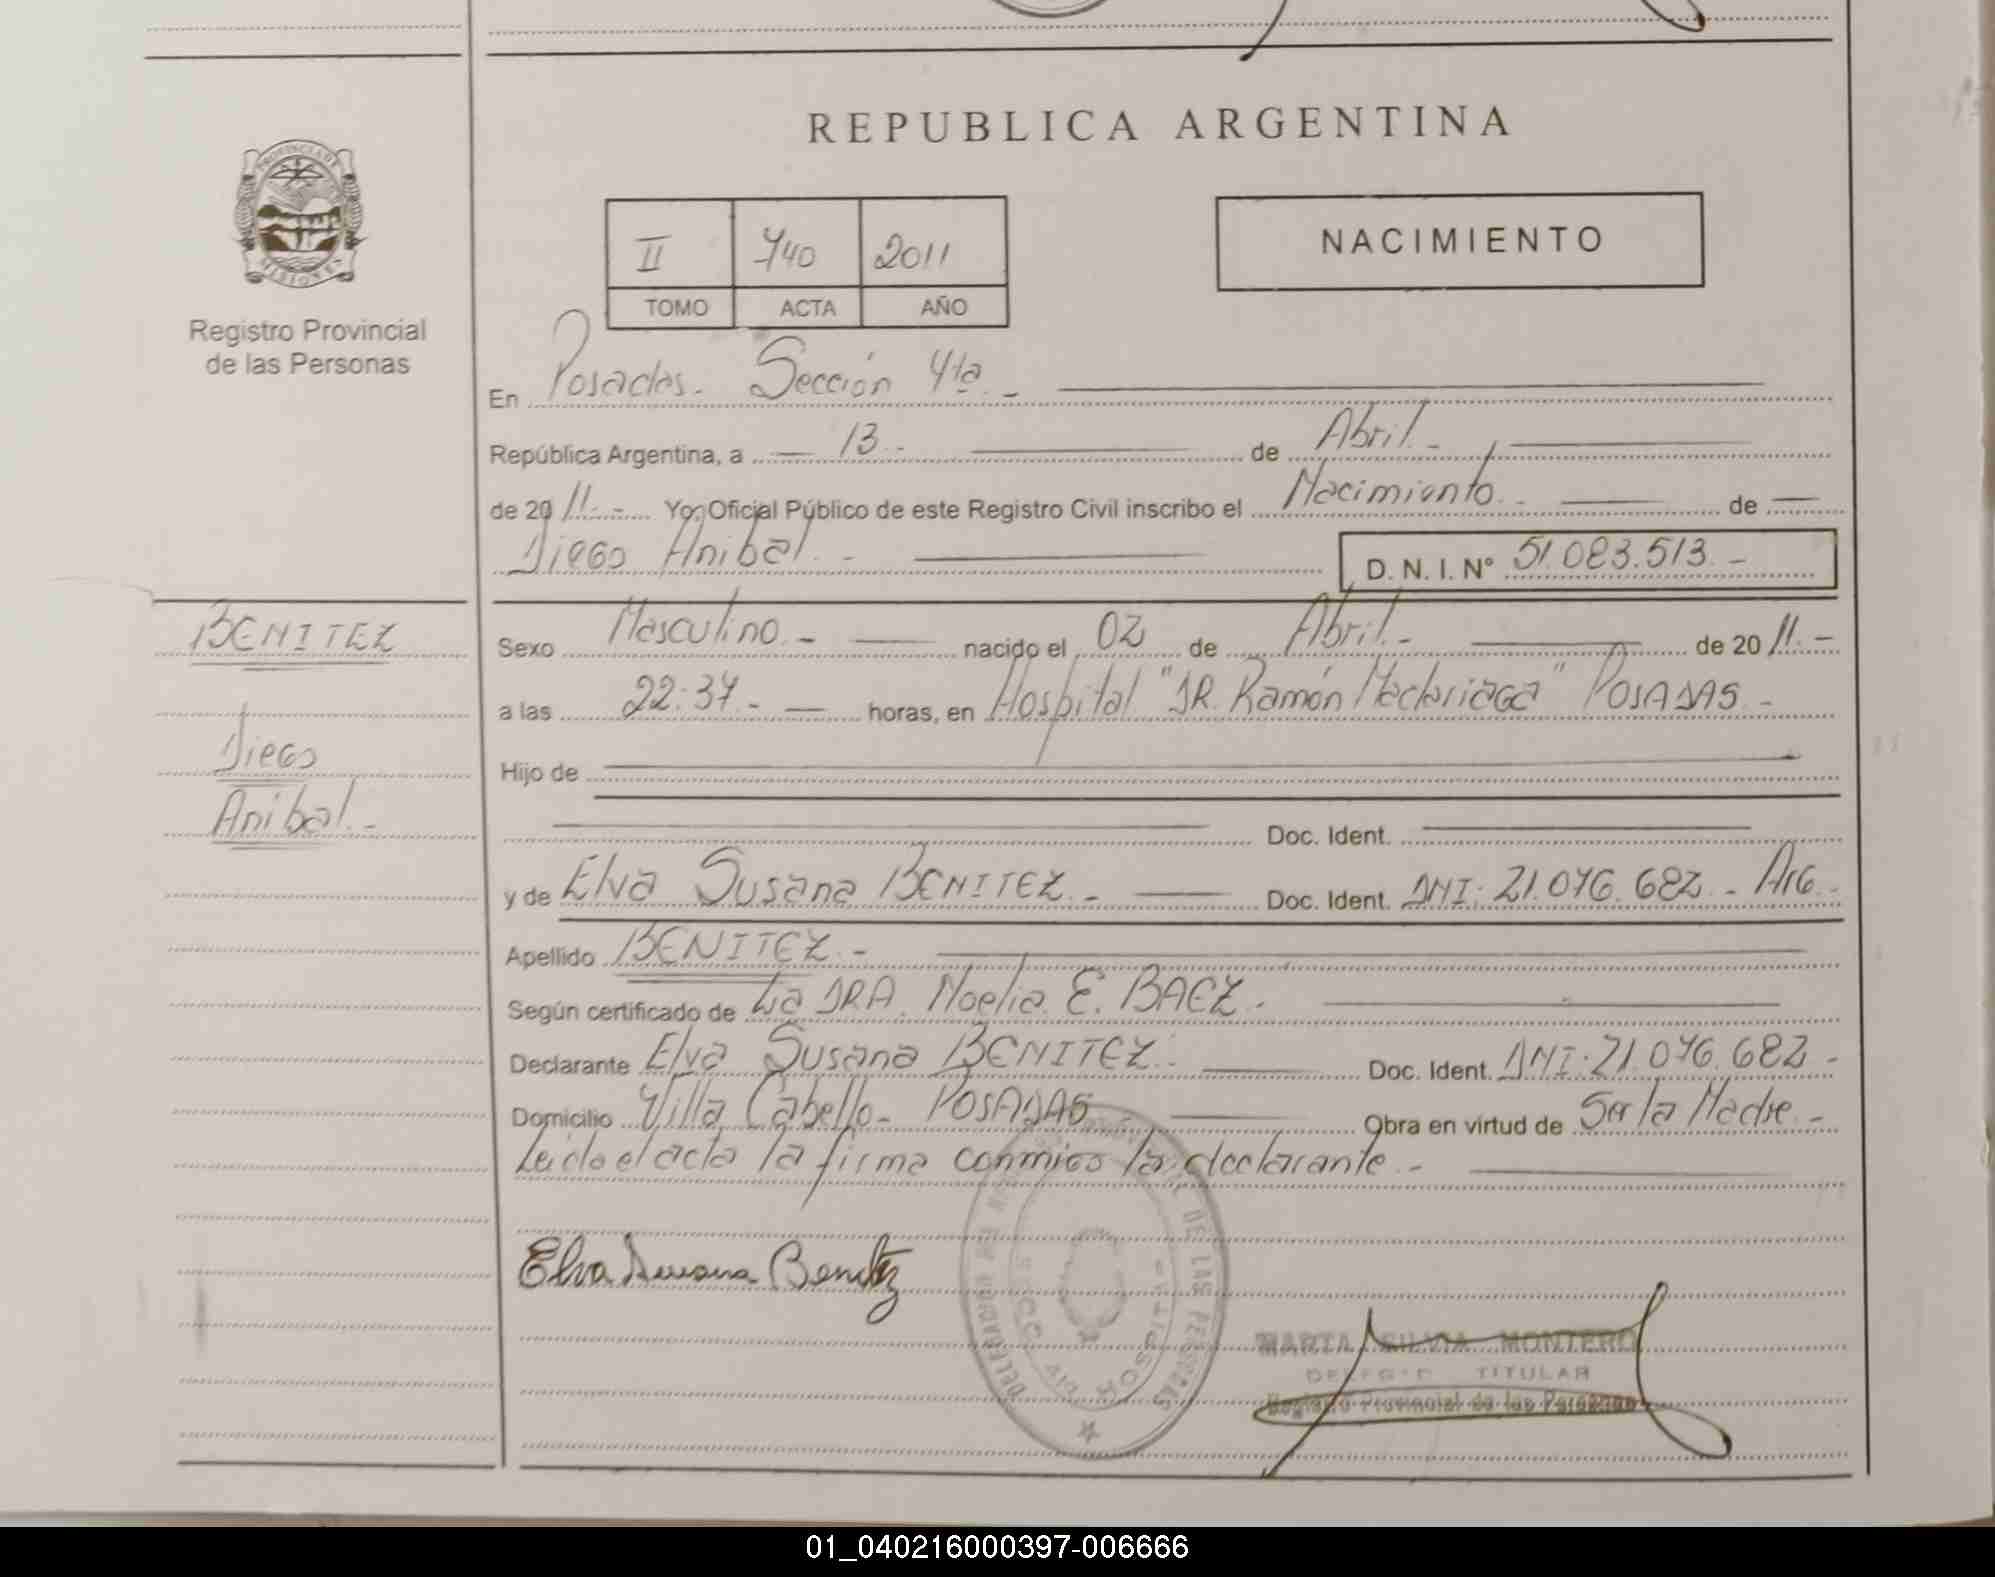 REPUBLICA ARGENTINA
PROVINCIA DE MISIONES
Registro Provincial
de las Personas
II 740 2011
TOMO ACTA AÑO
NACIMIENTO
En Posadas. Sección 4ta. -
República Argentina, a - 13. - de Abril. -
de 20 11. - Yo, Oficial Público de este Registro Civil inscribo el Nacimiento. - de -
Diego Anibal. - D. N. I. N° 51.083.513. -
BENITEZ
Diego
Anibal. -
Sexo Masculino. - nacido el 02 de Abril. - de 20 11. -
a las 22:37. - horas, en Hospital "DR. Ramón Madariaga" POSADAS. -
Hijo de
Doc. Ident.
y de Elva Susana BENITEZ. - Doc. Ident. DNI: 21.046.682. - ARG. -
Apellido BENITEZ. -
Según certificado de La DRA. Noelia E. BAEZ. -
Declarante Elva Susana BENITEZ. Doc. Ident. DNI: 21.046.682 -
Domicilio Villa Cabello - POSADAS Obra en virtud de Ser la Madre. -
Leido el acta la firma conmigo la declarante. -
Elva Susana Benitez
DE LAS PERSONAS
HOSPITAL
MARTA SILVIA MONTERO
TITULAR
Registro Provincial de las Personas
01_040216000397-006666